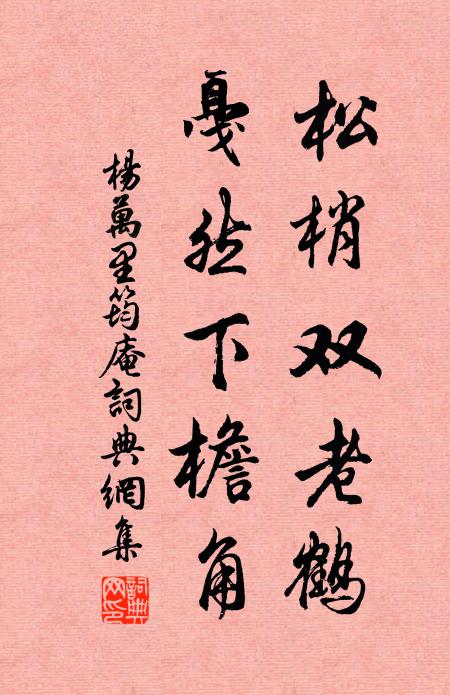 松梢双老鹤
戛然下檐角
楊萬里筠庵詞典網集
詞典网印